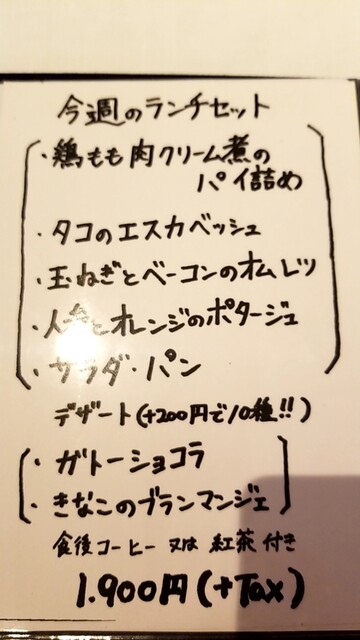 今週のランチセット
・鶏もも肉クリーム煮の
パイ詰め
・タコのエスカベッシュ
・玉ねぎとベーコンのオムレツ
・人参とオレンジのポタージュ
・サラダ・パン
デザート(+200円で10種!!)
・ガトーショコラ
・きなこのブランマンジェ
食後コーヒー又は紅茶付き
1.900円(+Tax)